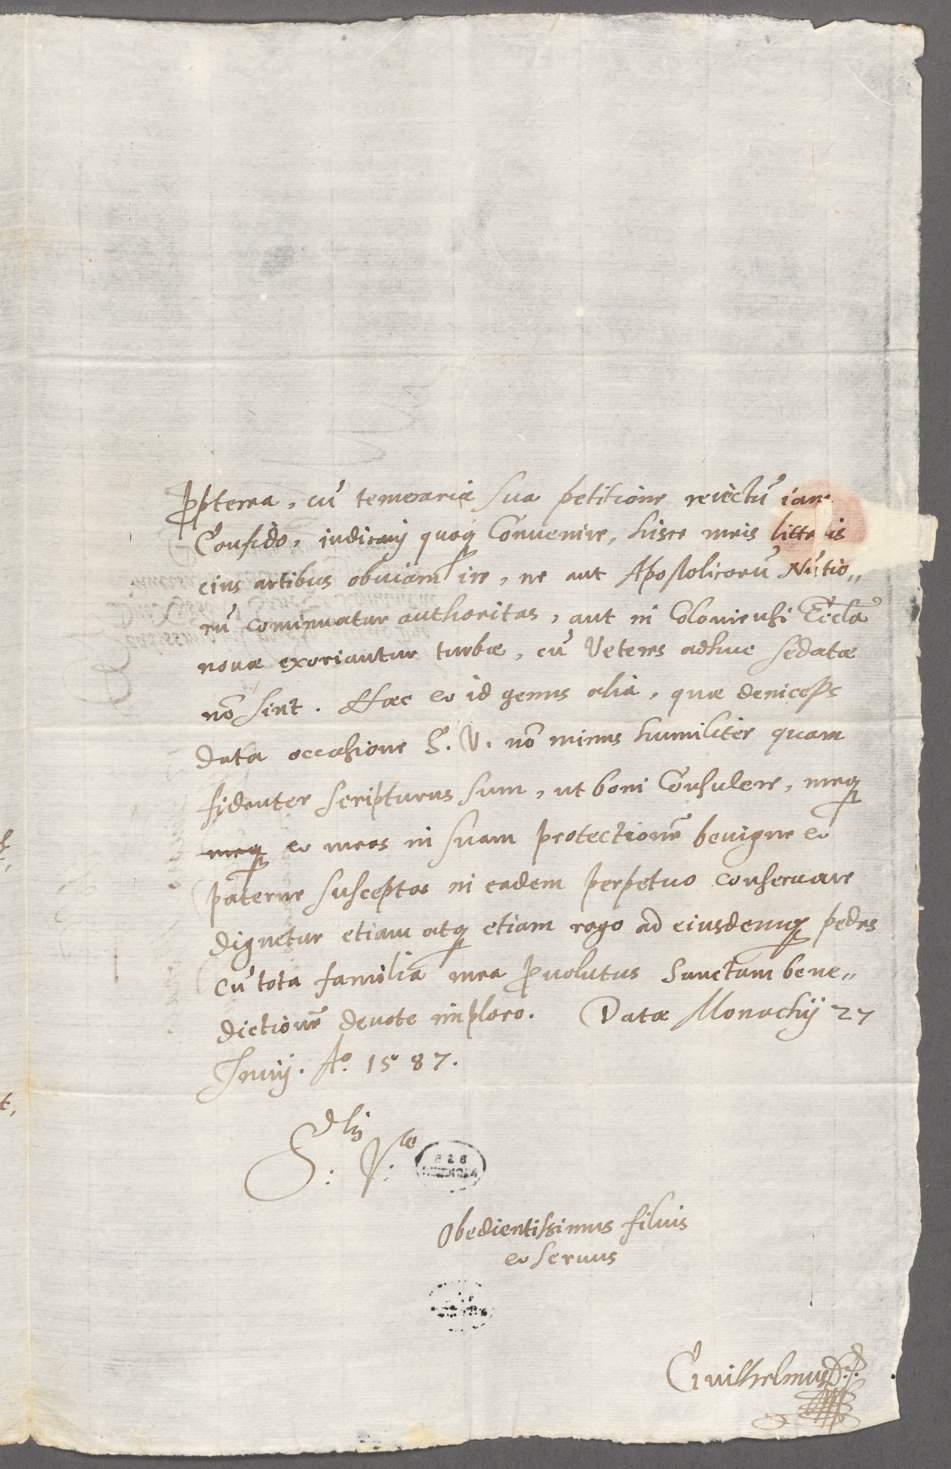 Ppterea, cū temeraria sua petitione reiectū iam
Confido, iudicavi quoq; Convenire, hisce meis litteris
eius artibus obviam ire, ne aut Apostolicorū Nūtio„
rū cominuatur authoritas, aut in Coloniensi Eccla
novae exoriantur turbae, cū Veteres adhuc sedatae
nō sint. Haec et id genus alia, quae
data occasione S. V. nō minus humiliter quam
fidenter scripturus sum, ut boni Consulere, meq;
meq; et meos in suam protectionē benigne et
paterne susceptos in eadem perpetuo conservare
dignetur etiam atq; etiam rogo ad eiusdemq; pedes
cū tota familia mea pvolutus Sanctam bene„
dictionē devote imploro. Datae Monachij 27
Junij. Aº. 1587.
S: V:
Obedientissimus filius
et servus
Guilhelmus